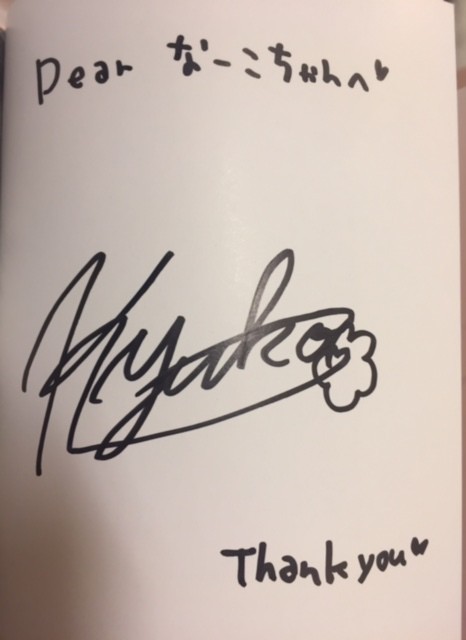 Dear なーこちゃんへ♥
Kyoko
Thank you♥